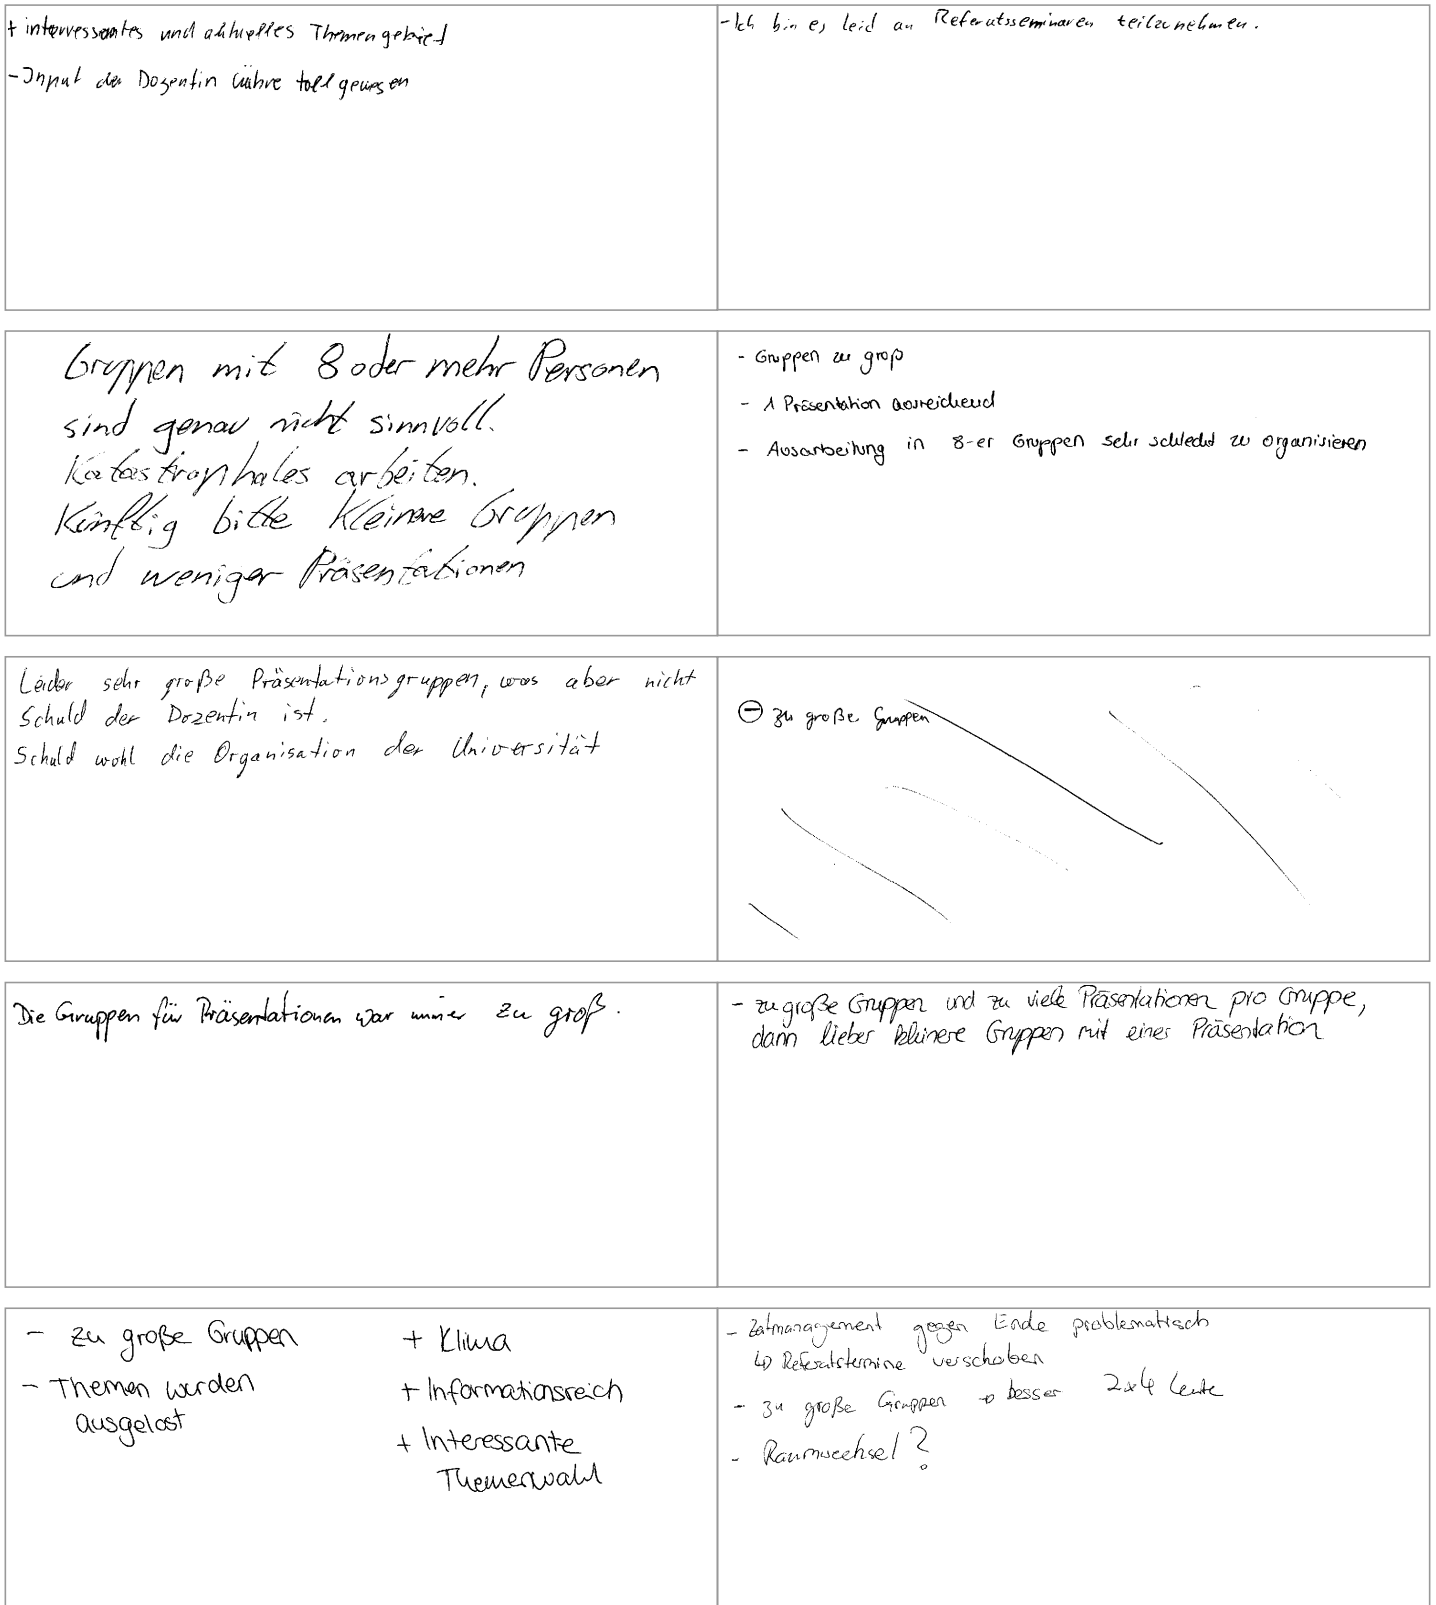 + interressantes und aktuelles Themengebiet
- Input der Dozentin währe toll gewesen
- Ich bin es leid an Referatsseminaren teilzunehmen.
Gruppen mit 8 oder mehr Personen
sind genau nicht sinnvoll.
Katastrophales arbeiten.
Künftig bitte kleinere Gruppen
und weniger Präsentationen
- Gruppen zu groß
- 1 Präsentation ausreichend
- Ausarbeitung in 8-er Gruppen sehr schlecht zu organisieren
Leider sehr große Präsentationsgruppen, was aber nicht
Schuld der Dozentin ist.
Schuld wohl die Organisation der Universität
⊖ zu große Gruppen
Die Gruppen für Präsentationen war immer zu groß.
- zu große Gruppen und zu viele Präsentationen pro Gruppe,
dann lieber kleinere Gruppen mit einer Präsentation
- zu große Gruppen
- Themen wurden
ausgelost
+ Klima
+ Informationsreich
+ Interessante
Themenwahl
- Zeitmanagement gegen Ende problematisch
↳ Referatstermine verschoben
- zu große Gruppen → besser 2x4 Leute
- Raumwechsel?